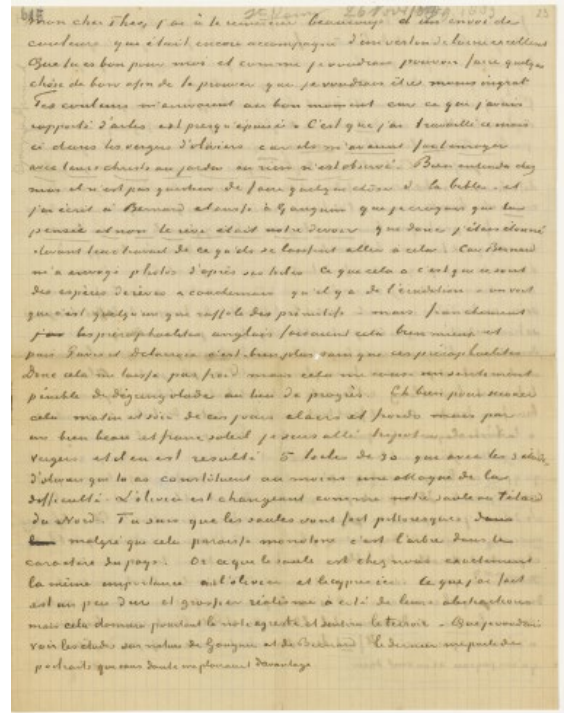 Mon cher Theo, j'ai à te remercier beaucoup d'un envoi de
couleurs qui était encore accompagné d'un veston de laine excellent
Que tu es bon pour moi et comme je voudrais pouvoir faire quelque
chose de bon afin de te prouver que je voudrais être moins ingrat
Les couleurs m'arrivaient au bon moment car ce que j'avais
rapporté d'Arles est presqu'épuisé. C'est que j'ai travaillé ce mois
ci dans les vergers d'oliviers car ils m'avaient fait enrager
avec leurs christs au jardin où rien n'est observé. Bien entendu chez
moi il n'est pas question de faire quelque chose de la bible – et
j'ai écrit à Bernard et aussi à Gauguin que je croyais que la
pensée et non le rêve était notre devoir que donc j'étais étonné
devant leur travail de ce qu'ils se laissent aller à cela. Car Bernard
m'a envoyé photos d'après ses toiles Ce que cela a c'est que ce sont
des espèces de rêves & cauchemars qu'il y a de l'érudition – on voit
que c'est quelqu'un qui raffole des primitifs – mais franchement
les préraphaelites anglais faisaient cela bien mieux et
puis Puvis et Delacroix c'est bien plus sain que ces préraphaelites
Donc cela me laisse pas froid mais cela me cause un sentiment
pénible de dégringolade au lieu de progrès. Eh bien pour secouer
cela matin et soir de ces jours clairs et froids mais par
un bien beau et franc soleil je suis allé dans les
vergers et il en est résulté 5 toiles de 30 qui avec les 3 études
d'oliviers que tu as constituent au moins une attaque de la
difficulté. L'olivier est changeant comme notre saule ou têtard
du Nord. Tu sais que les saules sont fort pittoresques
malgré que cela paraisse monotone c'est l'arbre dans le
caractère du pays. Or ce que le saule est chez nous exactement
la même importance a l'olivier et le cyprès ici. Ce que j'ai fait
est un peu dur et grossier réalisme à côté de leurs abstractions
mais cela donnera pourtant la note agreste et sentira le terroir – Que je voudrais
voir les études sur nature de Gauguin et de Bernard le dernier me parle de
portraits qui sans doute me plairaient davantage